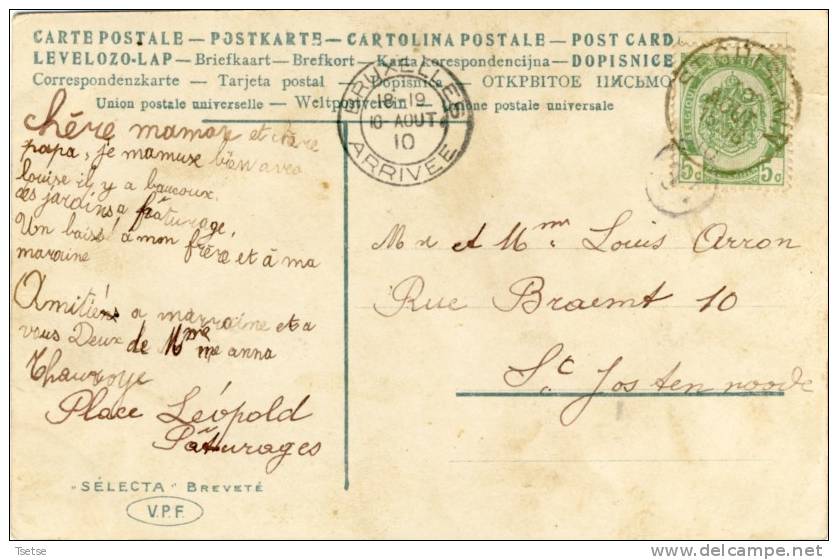 CARTE POSTALE — POSTKARTE — CARTOLINA POSTALE — POST CARD
LEVELEZO-LAP — Briefkaart — Brefkort — Karta korespondencijna — DOPISNICE
Correspondenzkarte — Tarjeta postal — Dopisnica — ОТКРЫТОЕ ПИСЬМО
Union postale universelle — Weltpostverein — Unione postale universale
BRUXELLES
18-19
10-AOUT
10
ARRIVEE
AOUT
10
5c 5c
chère maman et chère
papa, je mamuse bien avec
louise il y a baucoux
des jardins a pâturage,
Un baisé à mon frère et à ma
maraine
Amitiéns a marraine et a
vous Deux de Mme anna
Place Léopold
Pâturages
Mr et Mme Louis Arron
Rue Braemt 10
St Josten noode
"SÉLECTA" BREVETÉ
V.P.F.
Tsetse
www.delcampe.net